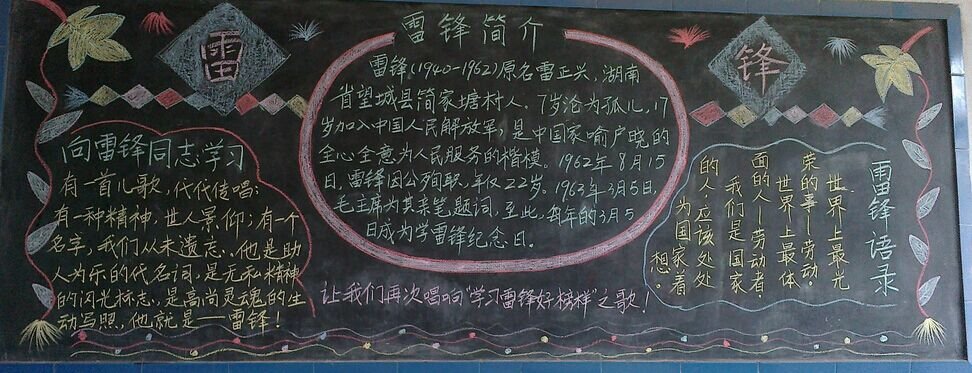 雷
锋
向雷锋同志学习
有一首儿歌，代代传唱；
有一种精神，世人景仰；有一个
名字，我们从未遗忘。他是助
人为乐的代名词，是无私精神
的闪光标志，是高尚灵魂的生
动写照，他就是——雷锋！
雷锋简介
雷锋（1940-1962）原名雷正兴，湖南
省望城县简家塘村人，7岁沦为孤儿，17
岁加入中国人民解放军，是中国家喻户晓的
全心全意为人民服务的楷模。1962年8月15
日，雷锋因公殉职，年仅22岁。1963年3月5日，
毛主席为其亲笔题词，至此，每年的3月5
日成为学雷锋纪念日。
让我们再次唱响“学习雷锋好榜样”之歌！
雷锋语录
世界上最光
荣的事—劳动。
世界上最体
面的人—劳动者。
我们是国家
的人，应该处处
为国家着
想。